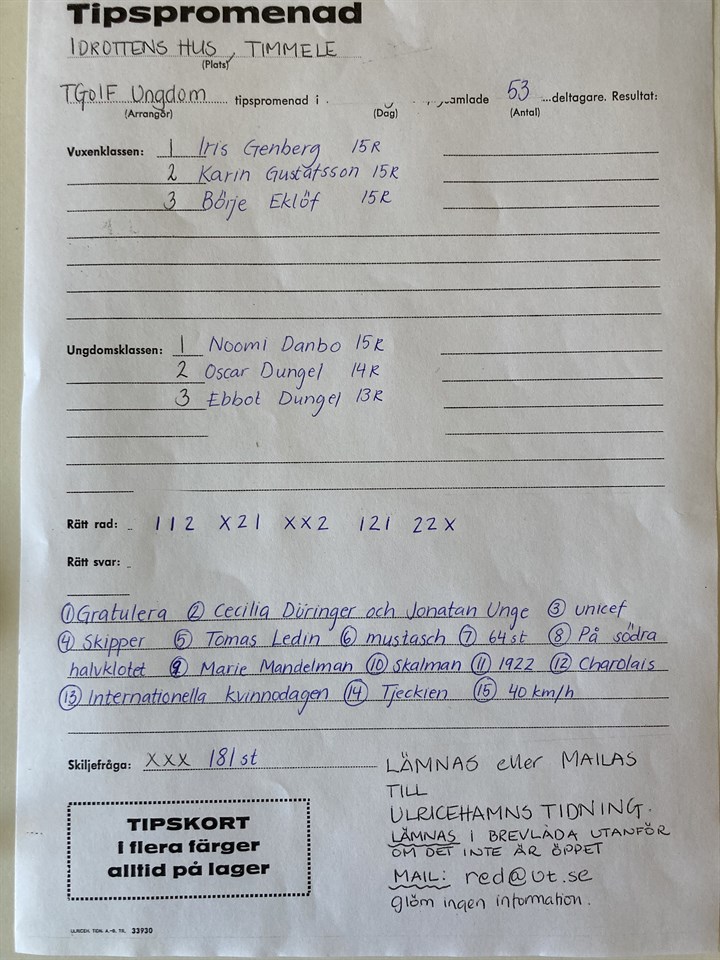 Tipspromenad
IDROTTENS HUS, TIMMELE
(Plats)
TGOIF Ungdom tipspromenad i samlade 53 deltagare. Resultat:
(Arrangör) (Dag) (Antal)
Vuxenklassen: 1 Iris Genberg 15R
2 Karin Gustafsson 15R
3 Börje Eklöf 15R
Ungdomsklassen: 1 Noomi Danbo 15R
2 Oscar Dungel 14R
3 Ebbot Dungel 13R
Rätt rad: 112 X21 XX2 121 22X
Rätt svar:
① Gratulera ② Cecilia Düringer och Jonatan Unge ③ unicef
④ Skipper ⑤ Tomas Ledin ⑥ mustasch ⑦ 64 st ⑧ På södra
halvklotet ⑨ Marie Mandelman ⑩ Skalman ⑪ 1922 ⑫ Charolais
⑬ Internationella kvinnodagen ⑭ Tjeckien ⑮ 40 km/h
Skiljefråga: XXX 181 st
LÄMNAS eller MAILAS
TILL
ULRICEHAMNS TIDNING.
LÄMNAS I BREVLÅDA UTANFÖR
OM DET INTE ÄR ÖPPET
MAIL: red@ut.se
glöm ingen information.
TIPSKORT
i flera färger
alltid på lager
ULRICEH. TIDN. A.-B. TR. 33930